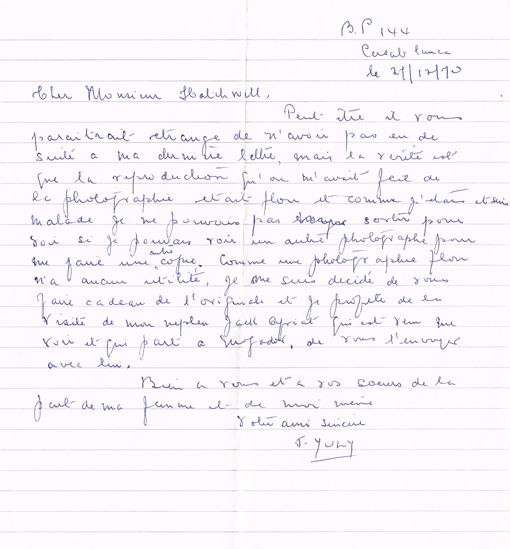 B.P 144
Casablanca
le 21/12/70
Cher Monsieur Hatchwell,
Peut être il vous
paraitrait etrange de n'avoir pas eu de
suite a ma derniere lettre, mais la verité est
que la reproduction qu'on m'avait fait de
la photographie etait flou et comme j'etais et suis
malade je ne pouvais pas sortir pour
voir si je pouvais voir un autre photographe pour
me faire une autre copie. Comme une photographie flou
n'a aucun utilité, je me suis decidé de vous
faire cadeau de l'originale et je profite de la
visite de mon nepheu Jack qui est venu me
voir et qui part a Mogador, de vous l'envoyer
avec lui.
Bien a vous et a vos soeurs de la
part de ma femme et de moi même
Votre ami sincere
J. YULY